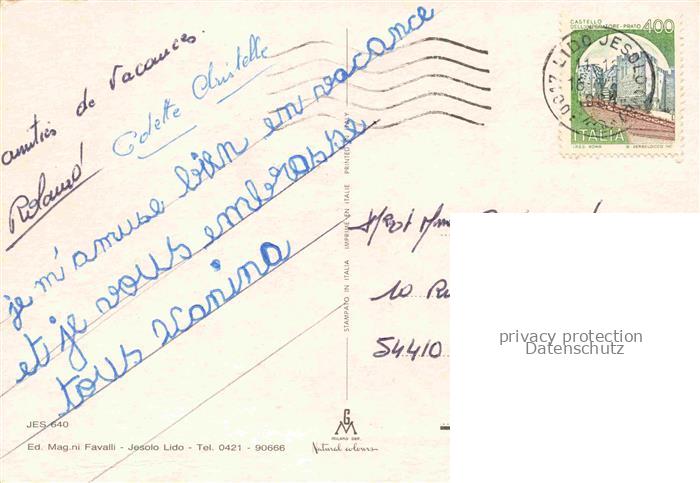 amitiés de Vacances.
Roland
Odette Christelle
je m'amuse bien en vacance
et je vous embrasse
tous Vanina
JES 640
Ed. Mag.ni Favalli - Jesolo Lido - Tel. 0421 - 90666
STAMPATO IN ITALIA IMPRIMÉ EN ITALIE PRINTED IN ITALY
GM
MILANO DEP.
Natural colours
CASTELLO
DELL'IMPERATORE - PRATO 400
ITALIA
I.P.Z.S. ROMA
LIDO JESOLO
54410
10
privacy protection
Datenschutz